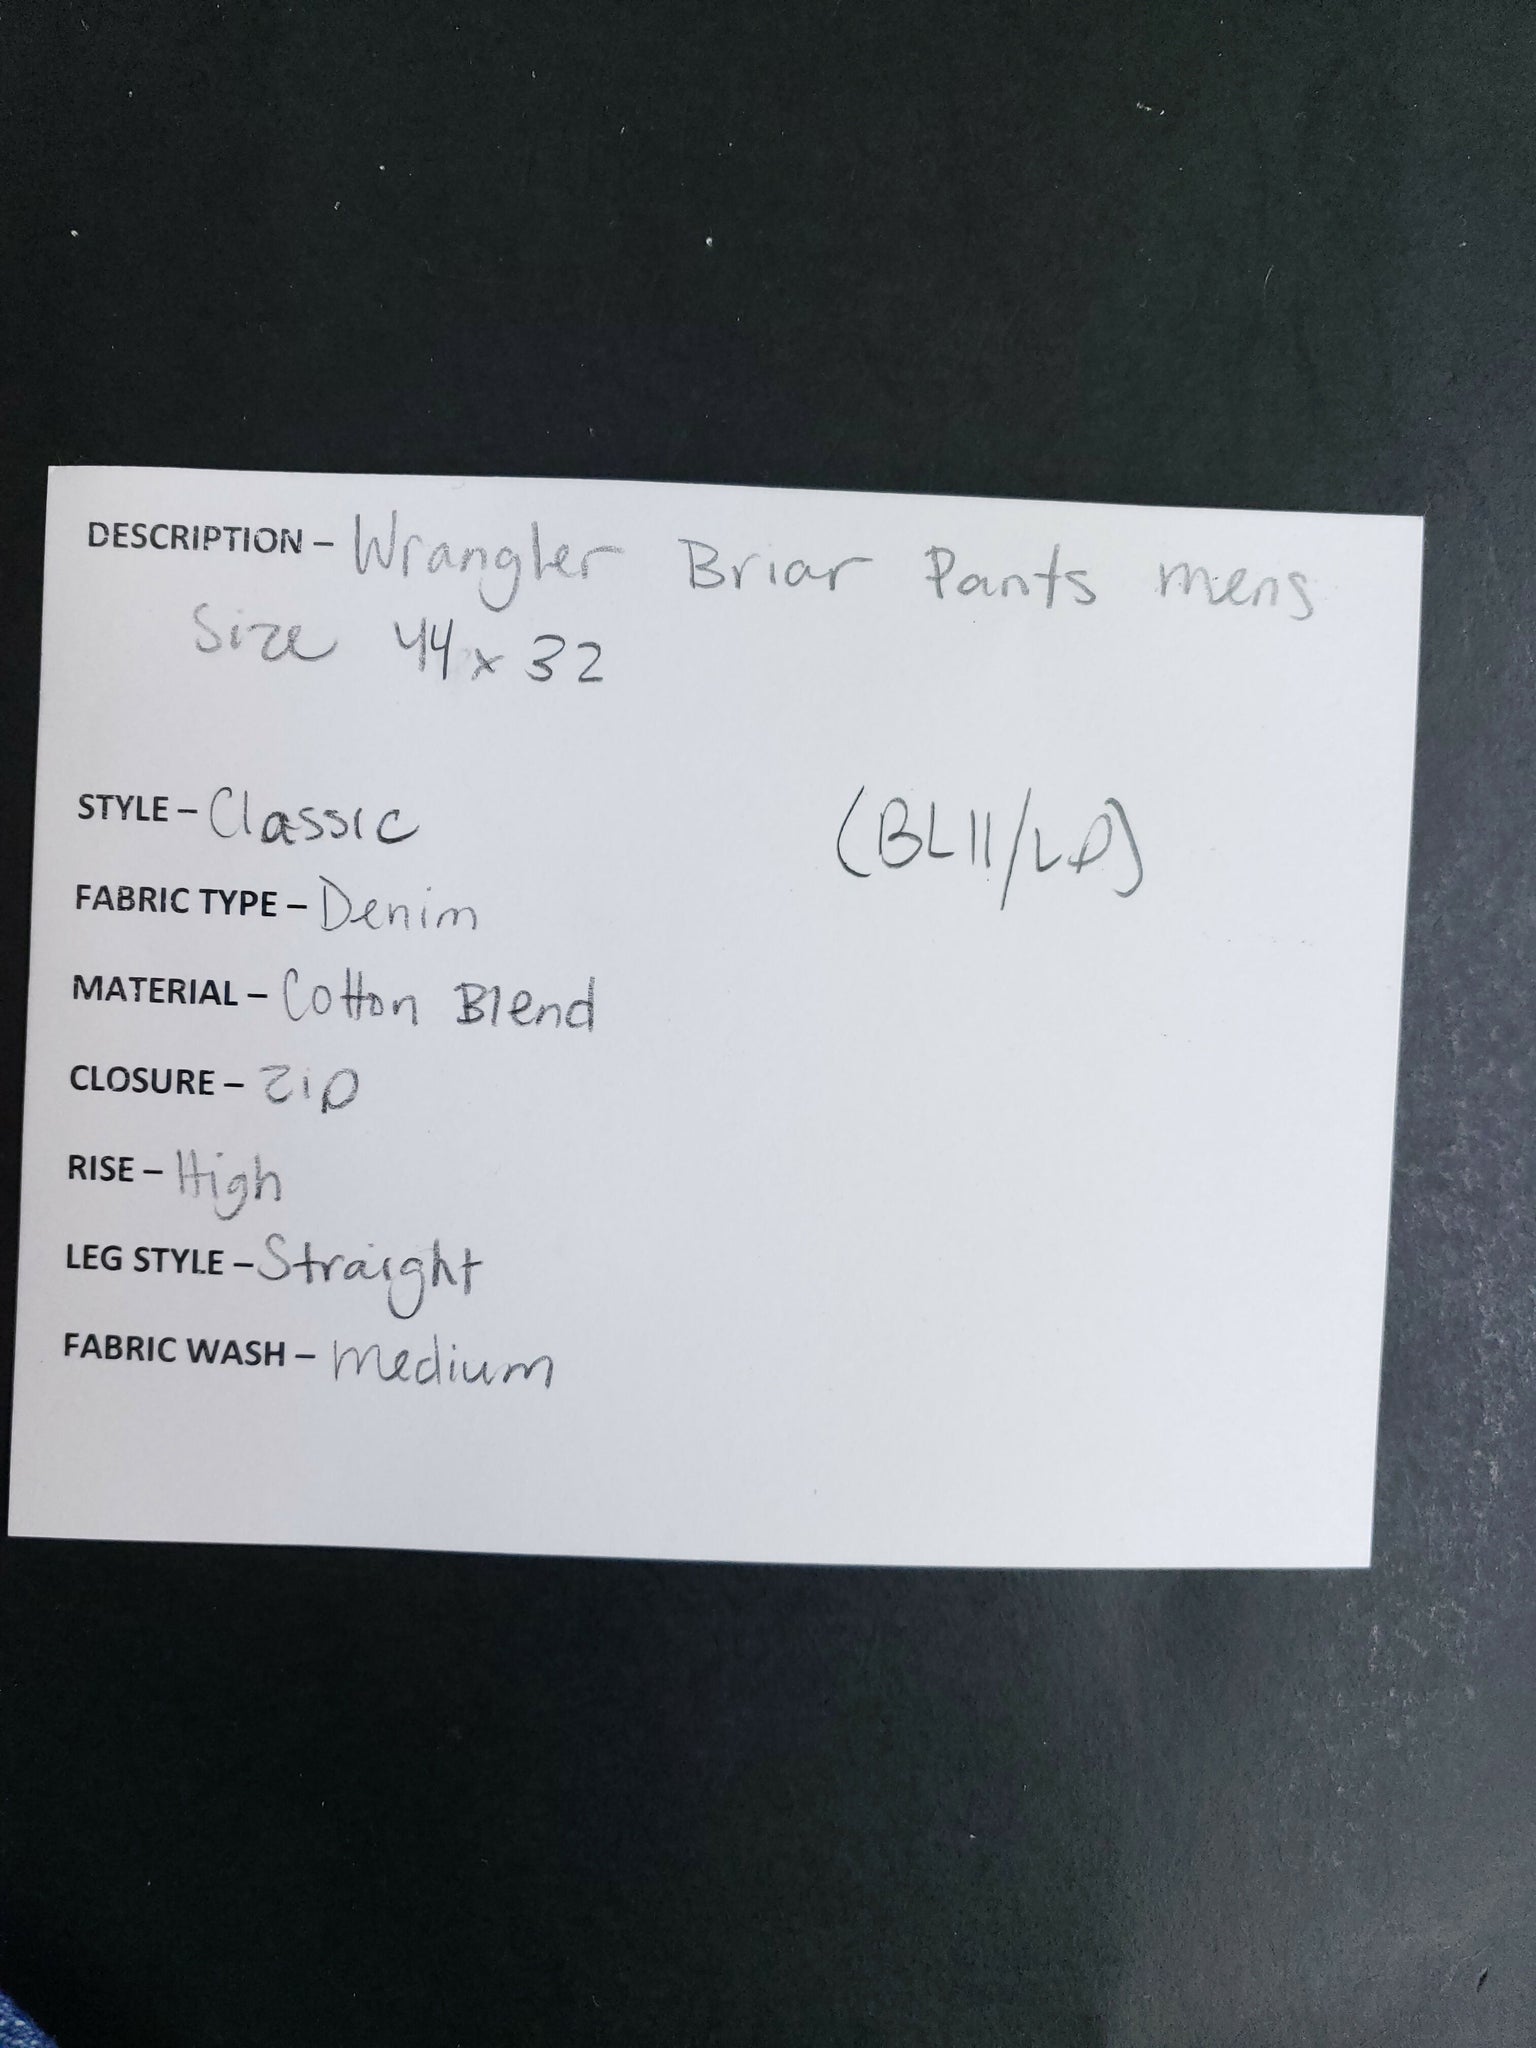 DESCRIPTION – Wrangler Briar Pants mens
Size 44 x 32
STYLE – Classic
(BL11/LP)
FABRIC TYPE – Denim
MATERIAL – Cotton Blend
CLOSURE – Zip
RISE – High
LEG STYLE – Straight
FABRIC WASH – Medium